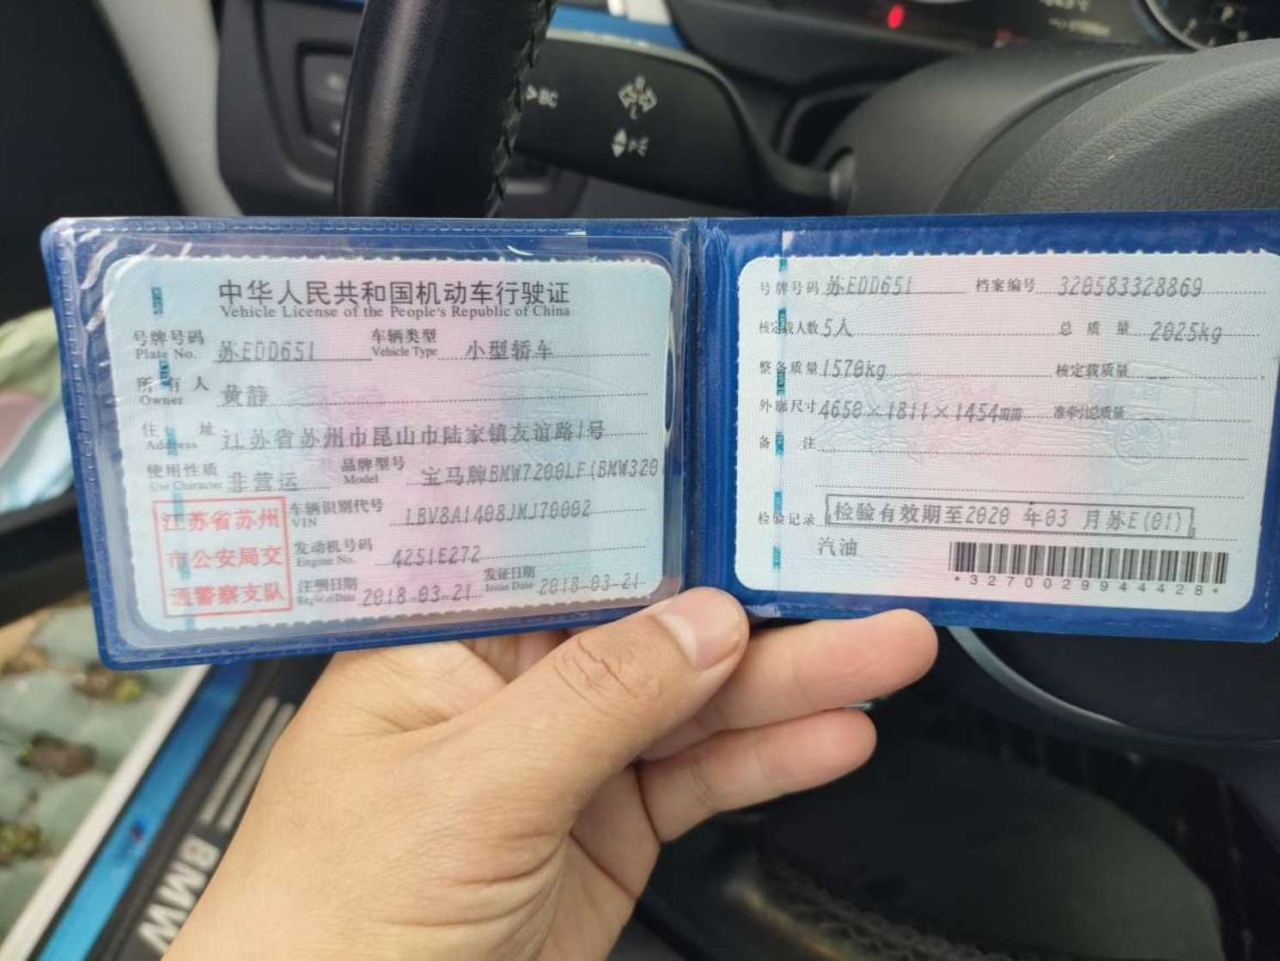 BC
中华人民共和国机动车行驶证
Vehicle License of the People's Republic of China
号牌号码 苏EDD651 车辆类型 小型轿车
Plate No. Vehicle Type
所有人 黄静
Owner
住址 江苏省苏州市昆山市陆家镇友谊路1号
Address
使用性质 非营运 品牌型号 宝马牌BMW7200LF(BMW320
Use Character Model
江苏省苏州
市公安局交
通警察支队
车辆识别代号 LBV8A1408JMJ70002
VIN
发动机号码 4251E272
Engine No.
注册日期 2018-03-21 发证日期 2018-03-21
Register Date Issue Date
号牌号码 苏EDD651 档案编号 320583328869
核定载人数 5人 总质量 2025kg
整备质量 1570kg 核定载质量 --
外廓尺寸 4650×1811×1454mm 准牵引总质量 --
备注
检验记录 检验有效期至2020年03月苏E(01)
汽油
*3270029944428*
BMW